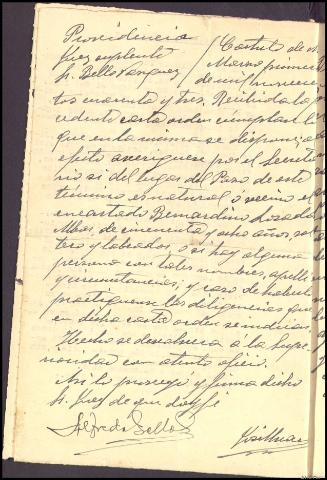 Providencia
Juez suplente
Sr. Bello Vazquez
Castelo de
Marzo primero
de mil novecien
tos cuarenta y tres. Recibida la
cedente carta orden cumplase lo
que en la misma se dispone; a
efecto averiguese por el Secreta
rio si del lugar del Pazo de este
término es natural ó vecino el
encartado Bernardino Lozado
de cincuenta y ocho años, sol
tero y labrador, ó si hay alguna
persona con tales nombres, apelli
y circunstancias, y caso de haberla
practiquense las diligencias que
en dicha carta orden se indican.
Hecho se devolverá a la Supe
rioridad con atento oficio.
Asi lo proveyo y firma dicho
Sr. Juez de que doy fe
Alfredo Bello